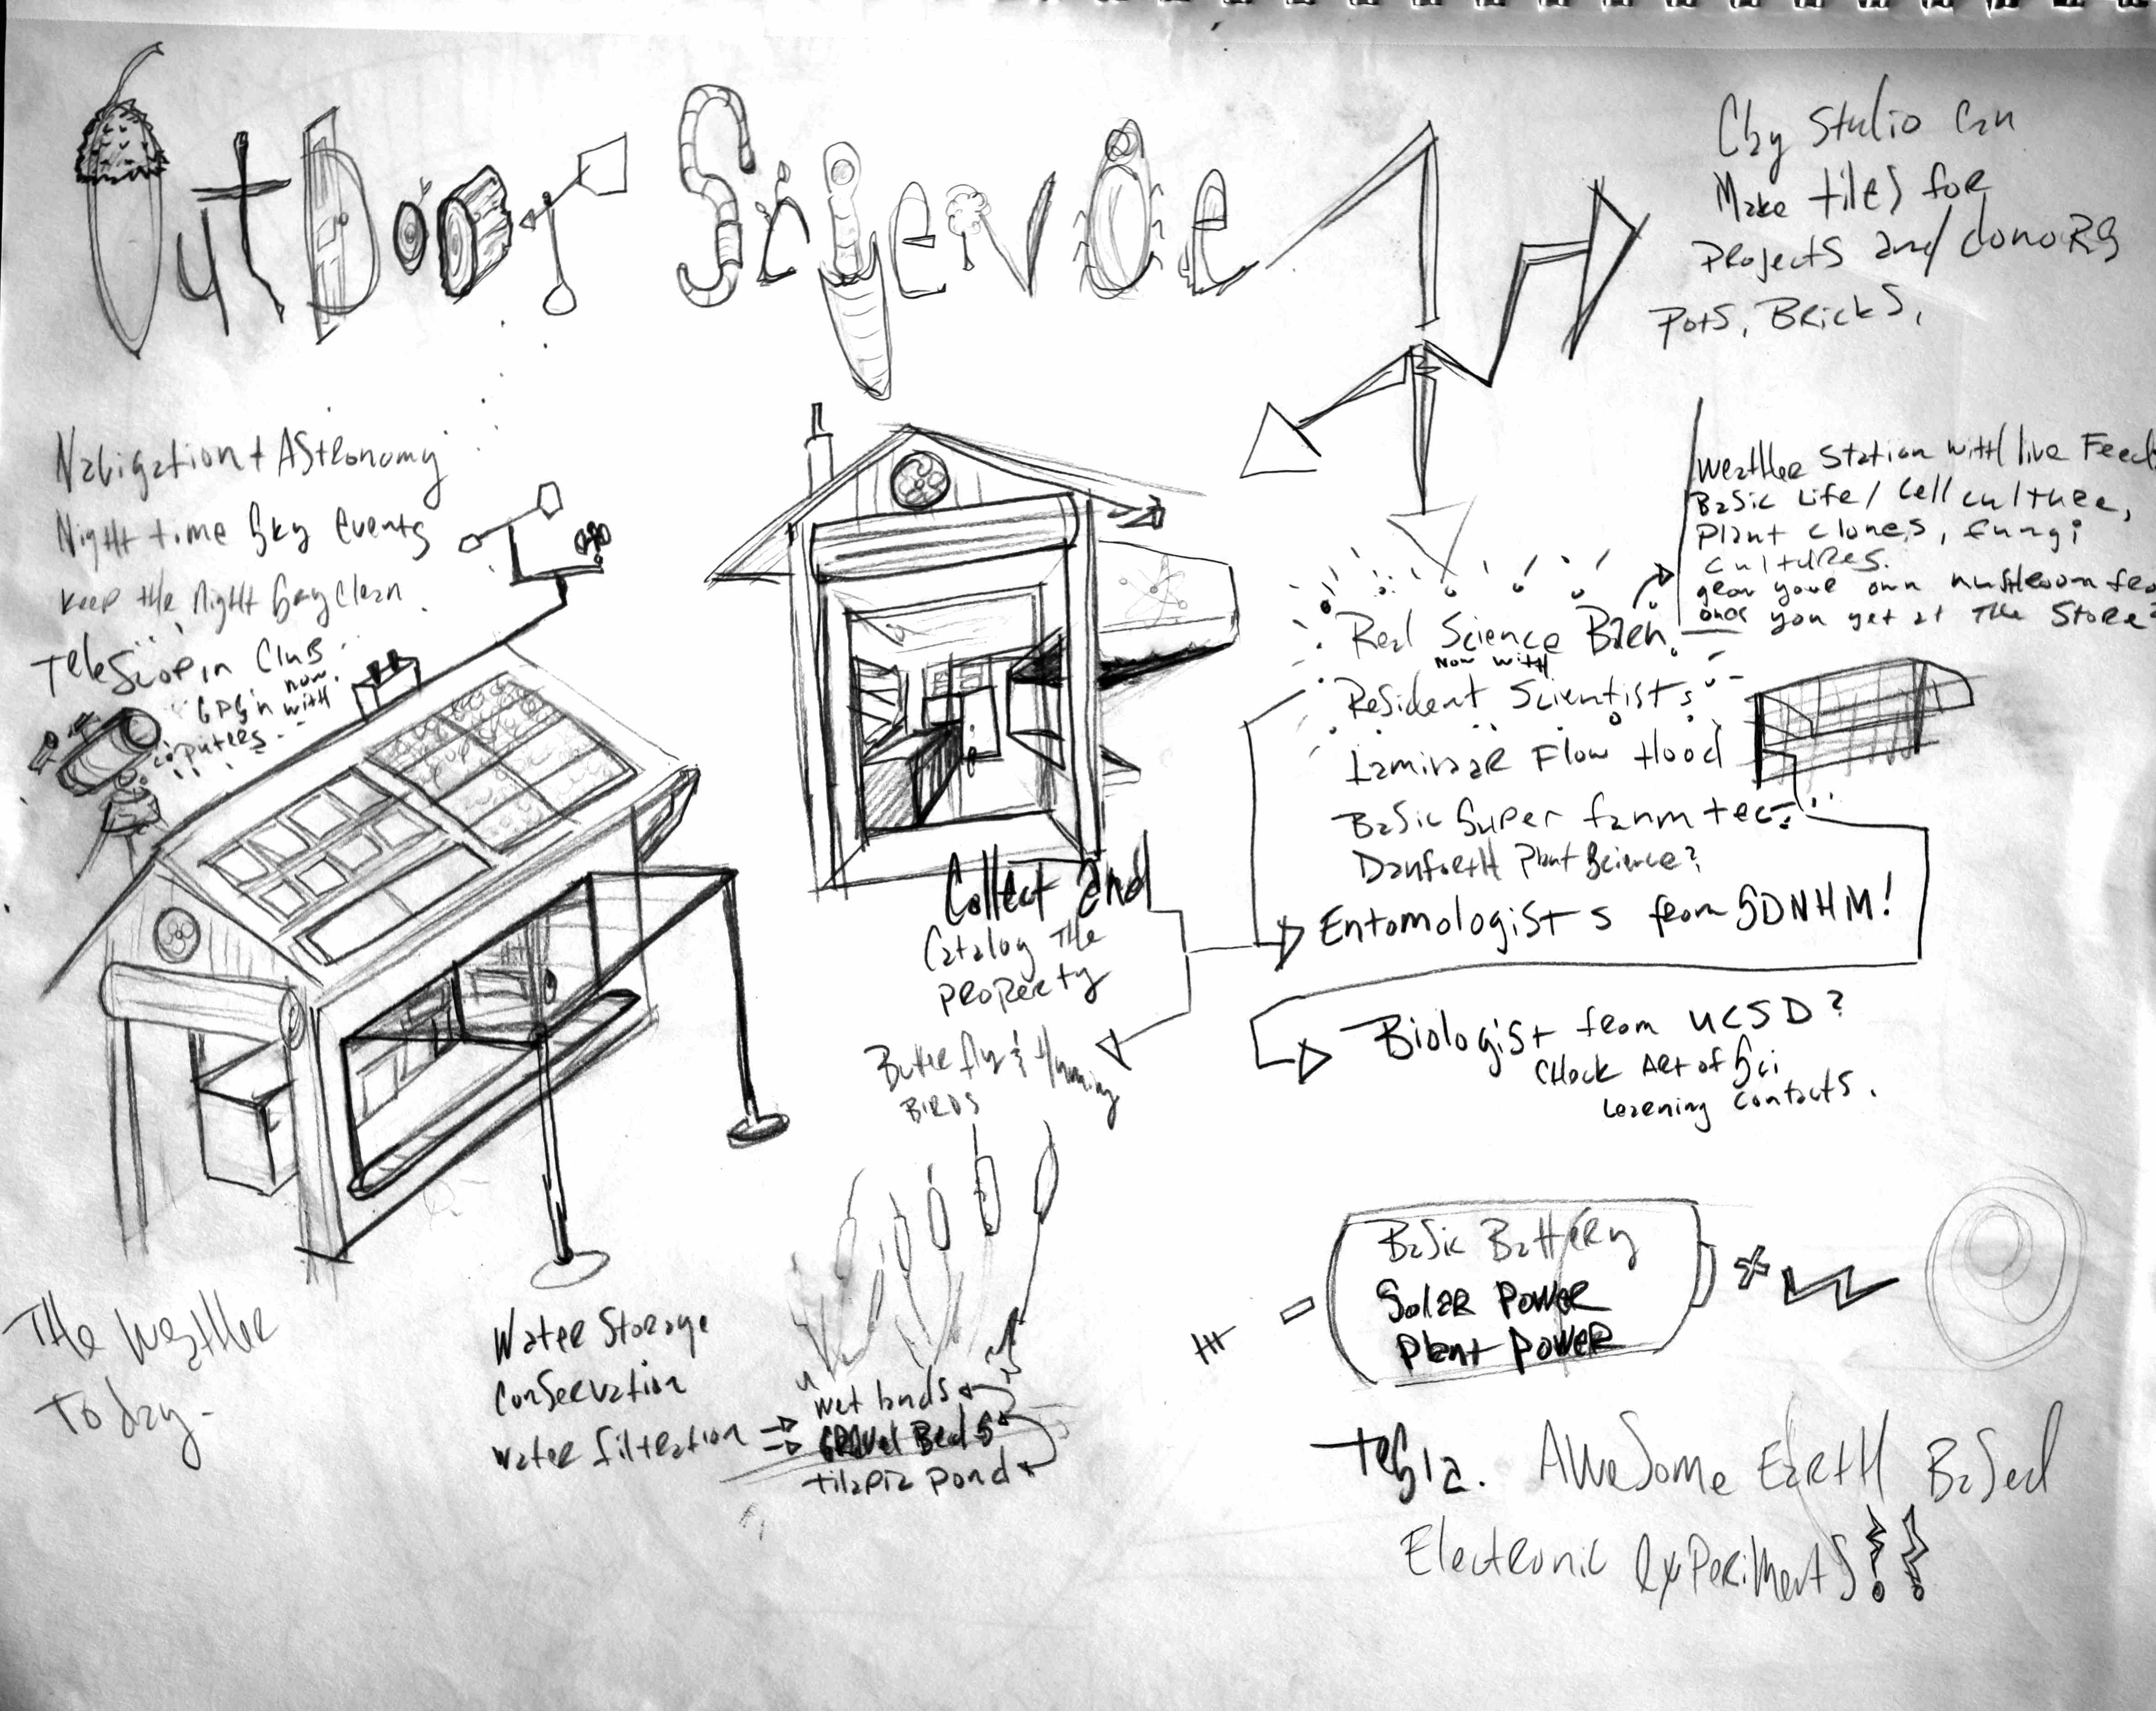 OutDoor Science
Clay Studio Can
Make tiles for
Projects and donors
Pots, Bricks,
Navigation + Astronomy
Night time Sky events
Keep the Night Sky Clean.
Telescopin Club
now
with
Weather Station with live Feed
Basic Life / Cell culture,
Plant clones, fungi
cultures.
grow your own mushroom from
ones you get at the Store
Real Science Barn.
Now with
Resident Scientists
Laminar Flow Hood
Basic Super farm tec.
Danforth Plant Science?
Entomologists from SDNHM!
Biologist from UCSD?
Check Art of Sci
Learning contacts.
Collect and
Catalog the
Property
Butterfly & Humming
Birds
The Weather
Today-
Water Storage
Conservation
Water filtration
Wet lands
Gravel Beds
tilapia pond
- Basic Battery +
Solar Power
Plant Power
Tesla. Awesome Earth Based
Electronic experiments!!